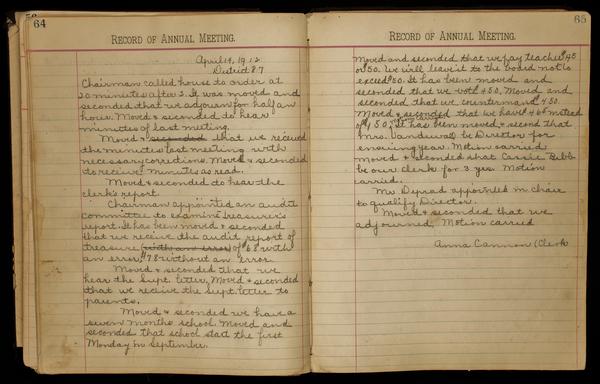 64
RECORD OF ANNUAL MEETING.
April 19, 1912
District 87
Chairman called house to order at
20 minutes after 2. It was moved and
seconded that we adjourn for half an
hour. Moved & seconded to hear
minutes of last meeting.
Moved & seconded that we received
the minutes last meeting with
necessary corrections. Moved & seconded
to receive minutes as read.
Moved & seconded to hear the
clerk's report.
Chairman appointed an audit
committee to examine treasurer's
report. It has been moved & seconded
that we receive the audit report of
treasure (with an error) of $68 with
an error, $78 without an error.
Moved & seconded that we
hear the Supt. letter, Moved & seconded
that we receive the Supt. letter to
parents.
Moved & seconded we have a
seven months school. Moved and
seconded that school start the first
Monday in September.
65
RECORD OF ANNUAL MEETING.
Moved and seconded that we pay teacher $45
or 50. We will leave it to the board not to
exceed $50. It has been moved and
seconded that we vote 450, Moved and
seconded that we countermand 450.
Moved & seconded that we have instead
of 450. It has been moved & second that
Mrs. be Director for
ensuing year. Motion carried,
moved & seconded that Cassie Bibb
be our clerk for 3 yrs. Motion
carried.
Mr appointed in chair
to qualify Director.
Moved & seconded that we
adjourned, Motion carried
Anna Cannon (Clerk